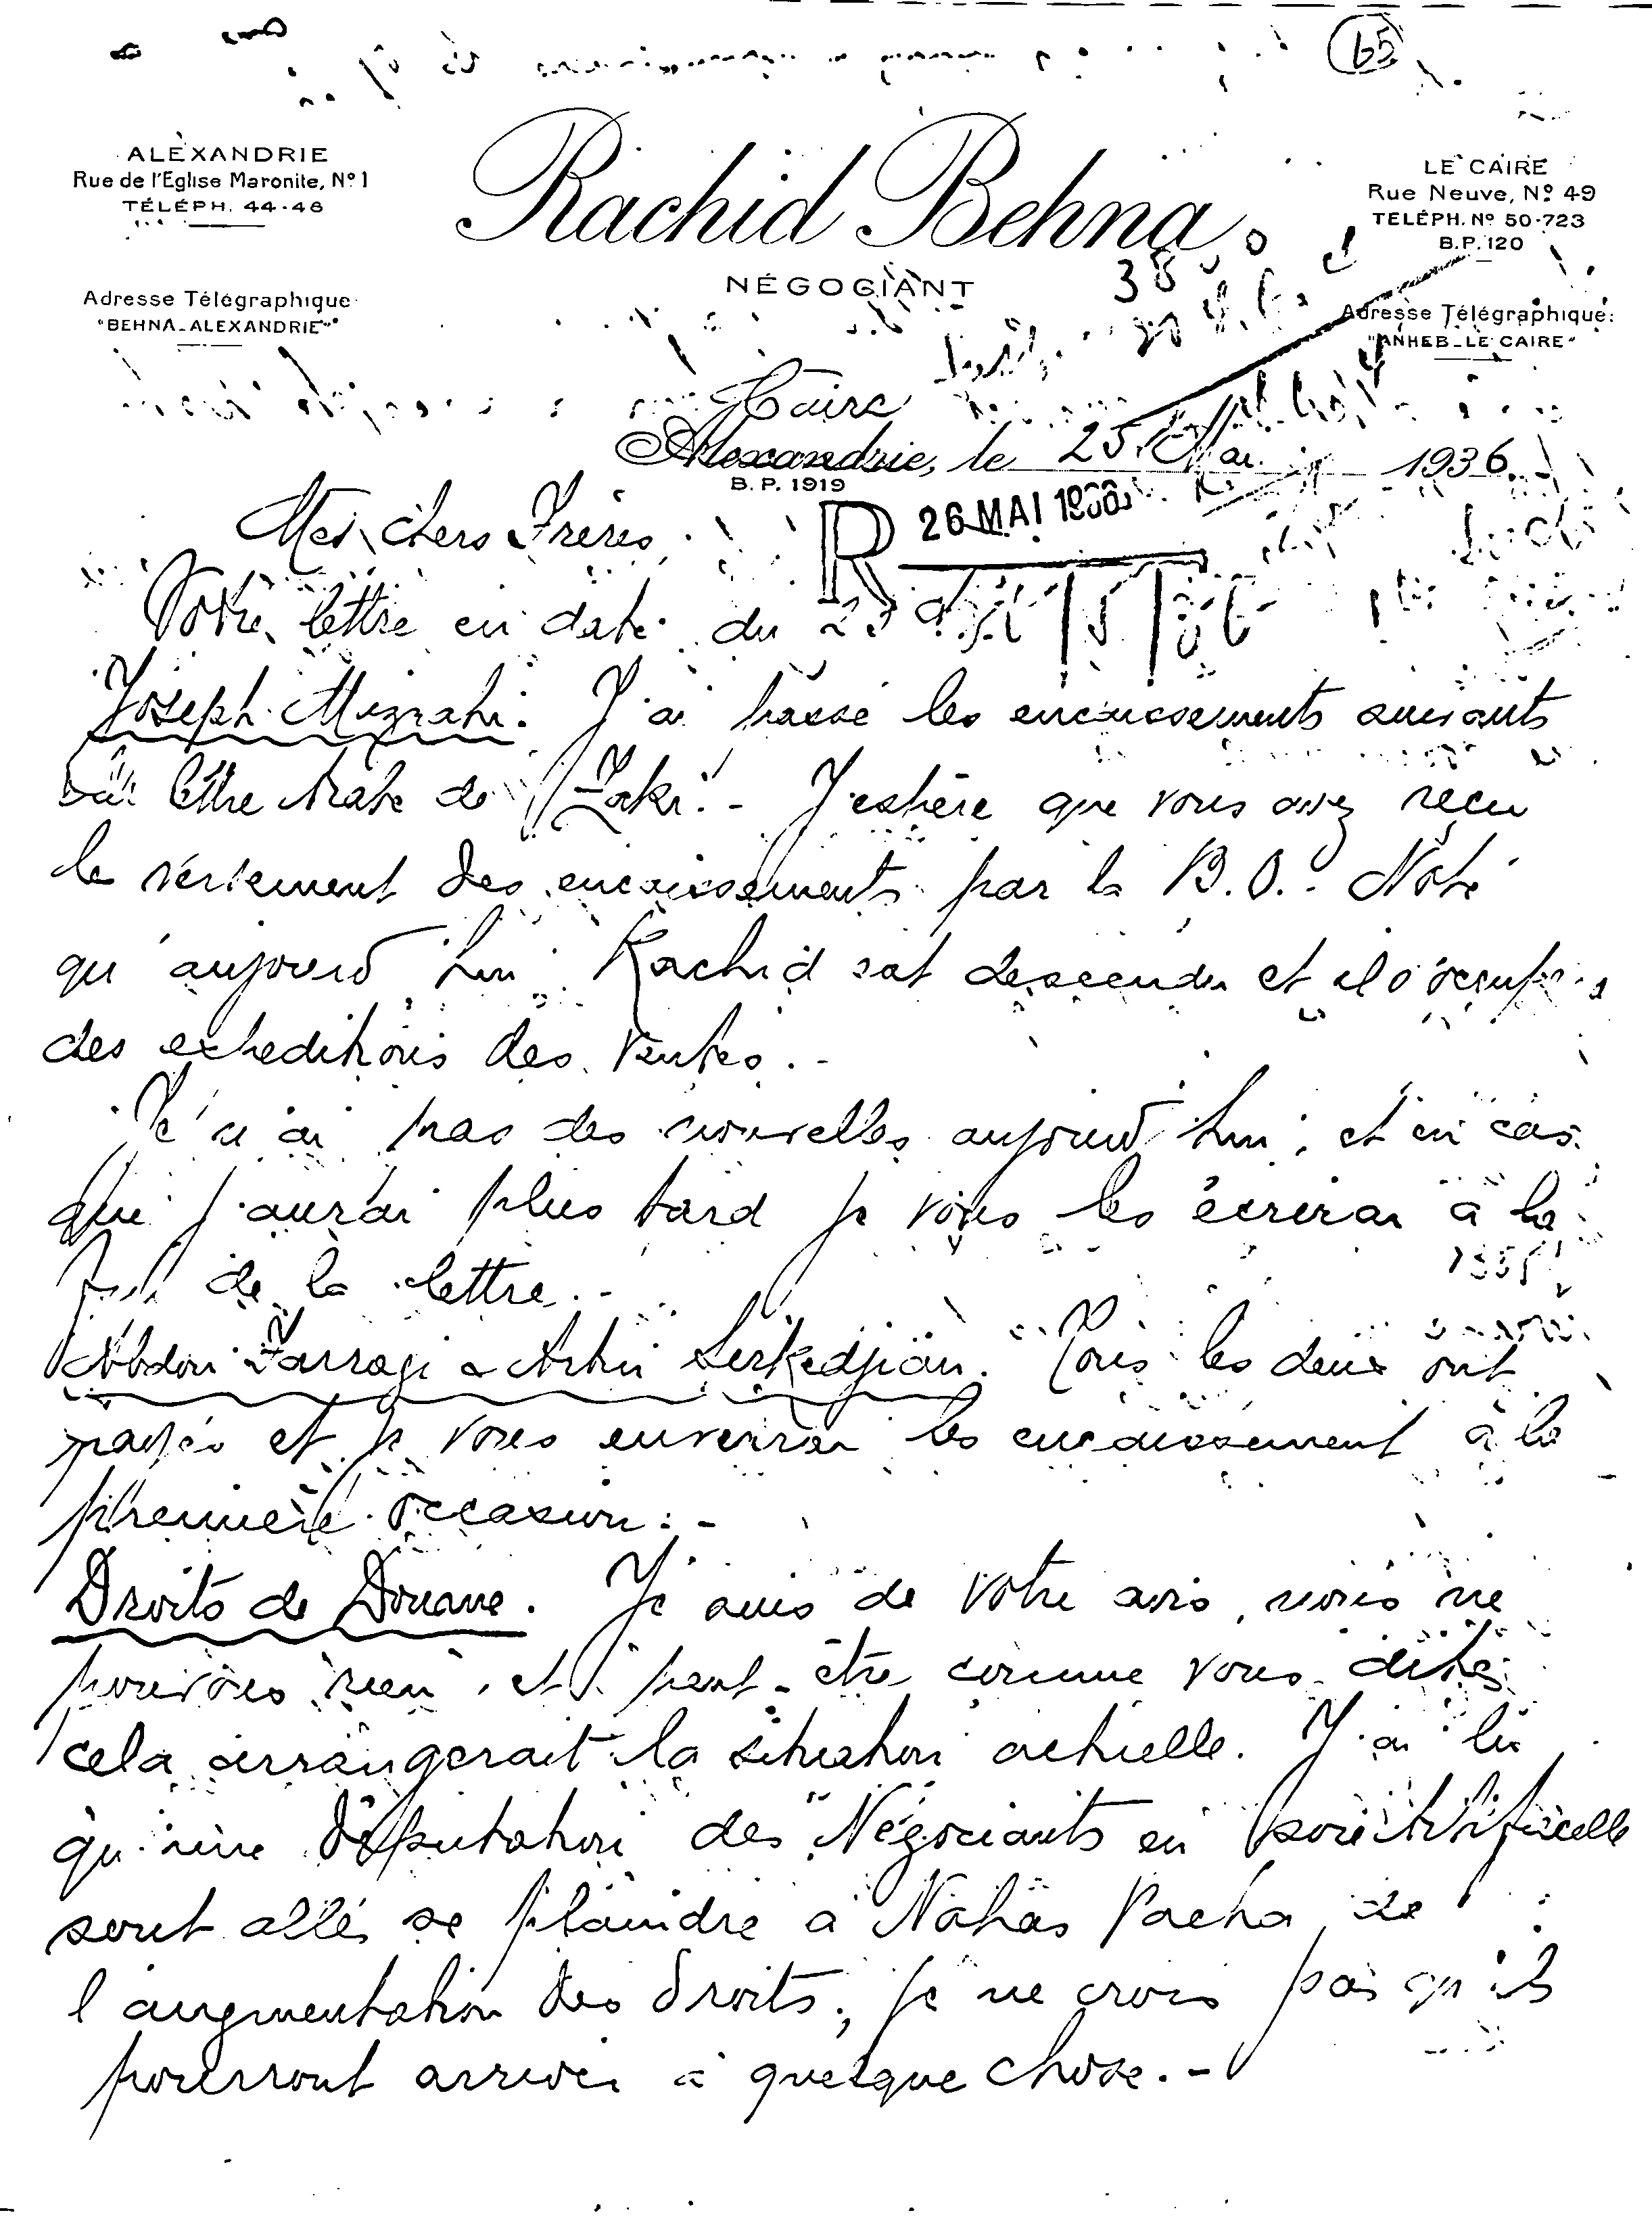 65
ALEXANDRIE
Rue de l'Eglise Maronite, Nº 1
TÉLÉPH. 44-48
Adresse Télégraphique
"BEHNA-ALEXANDRIE"
Rachid Behna
NÉGOCIANT
LE CAIRE
Rue Neuve, Nº 49
TELÉPH. Nº 50-723
B.P. 120
Adresse Télégraphique:
"ANHEB-LE CAIRE"
38
Caire
Alexandrie, le 25 Mai 1936
B. P. 1919
R 26 MAI
Mes chers Frères
Votre lettre en date du 23
Joseph Mizrahi. J'ai passé les encaissements suivants
lettre Arabe de Zaki. - J'espère que vous avez reçu
le versement des encaissements par la B.O. Noté
qu'aujourd'hui Rachid est descendu et il s'occupera
des expeditions des ventes. -
Je n'ai pas des nouvelles aujourd'hui, et en cas
que j'aurai plus tard je vous les écrirai à la
fin de la lettre. -
Abdou Farragi & Artin Serkedjian. Tous les deux ont
payés et je vous enverrai les encaissement à la
première occasion. -
Droits de Douane. Je suis de votre avis, nous ne
pouvons rien, et peut-être comme vous dites
cela arrangerait la situation actuelle. J'ai lu
qu'une députation des Négociants en soie Artificielle
sont allés se plaindre à Nahas Pacha de
l'augmentation des droits, je ne crois pas qu'ils
pourront arriver à quelque chose. -